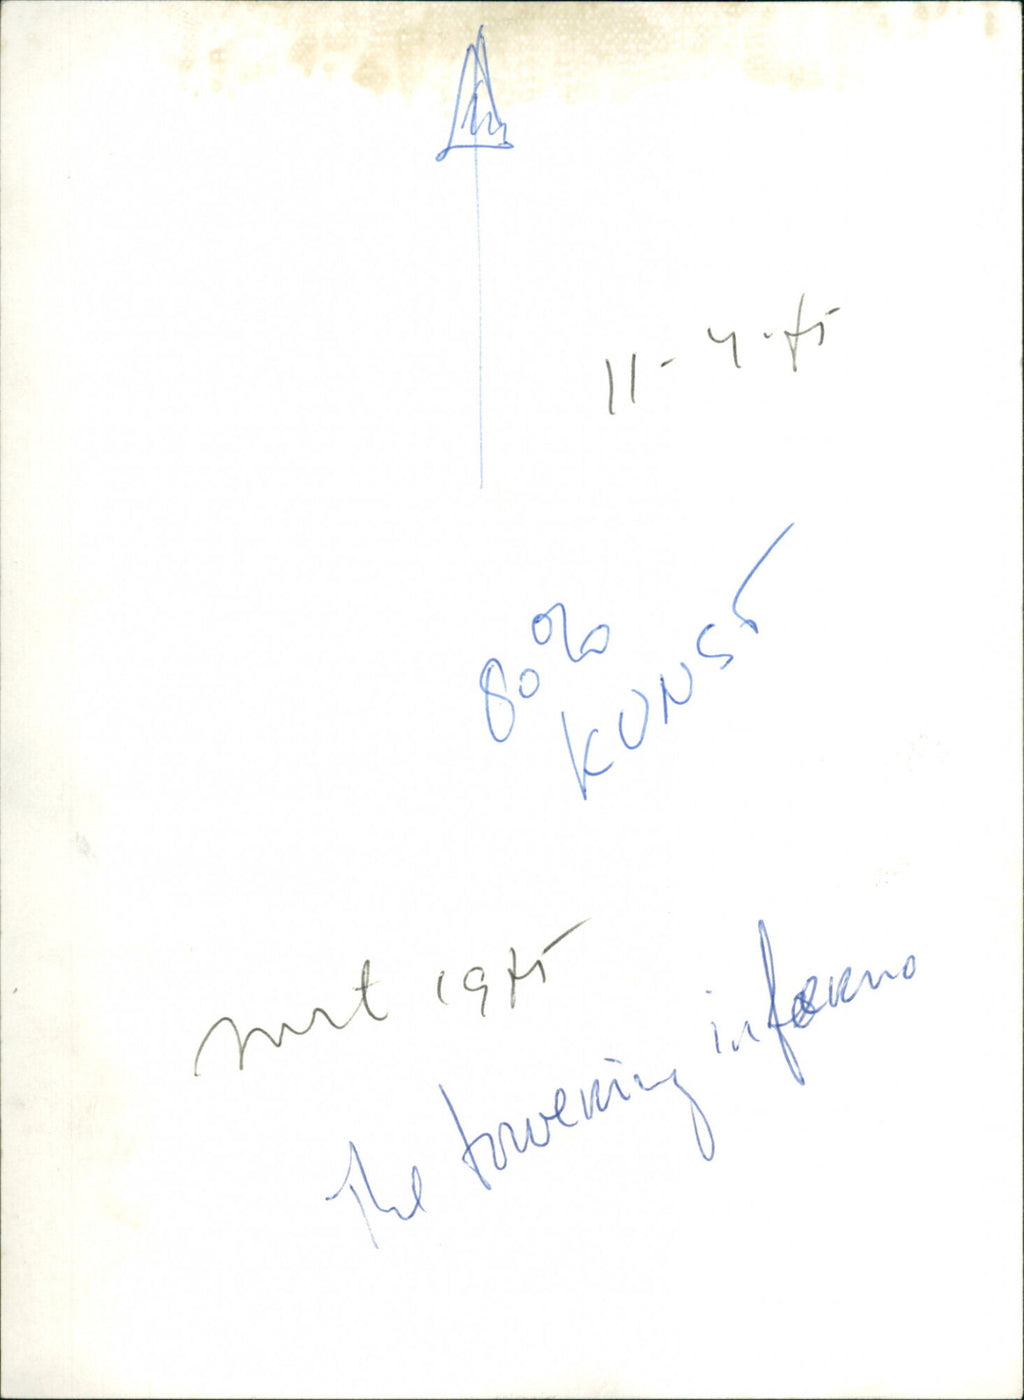 11-4-75
80%
KUNST
mrt 1975
The towering inferno